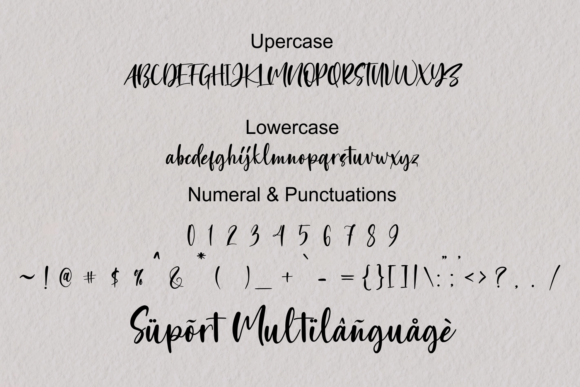 Upercase
ABCDEFGHIJKLMNOPQRSTUVWXYZ
Lowercase
abcdefghijklmnopqrstuvwxyz
Numeral & Punctuations
0 1 2 3 4 5 6 7 8 9
~ ! @ # $ % ^ & * ( ) _ + ` - = { } [ ] | \ : ; " ' < > ? , . /
Süpõrt Multïlâñguågè